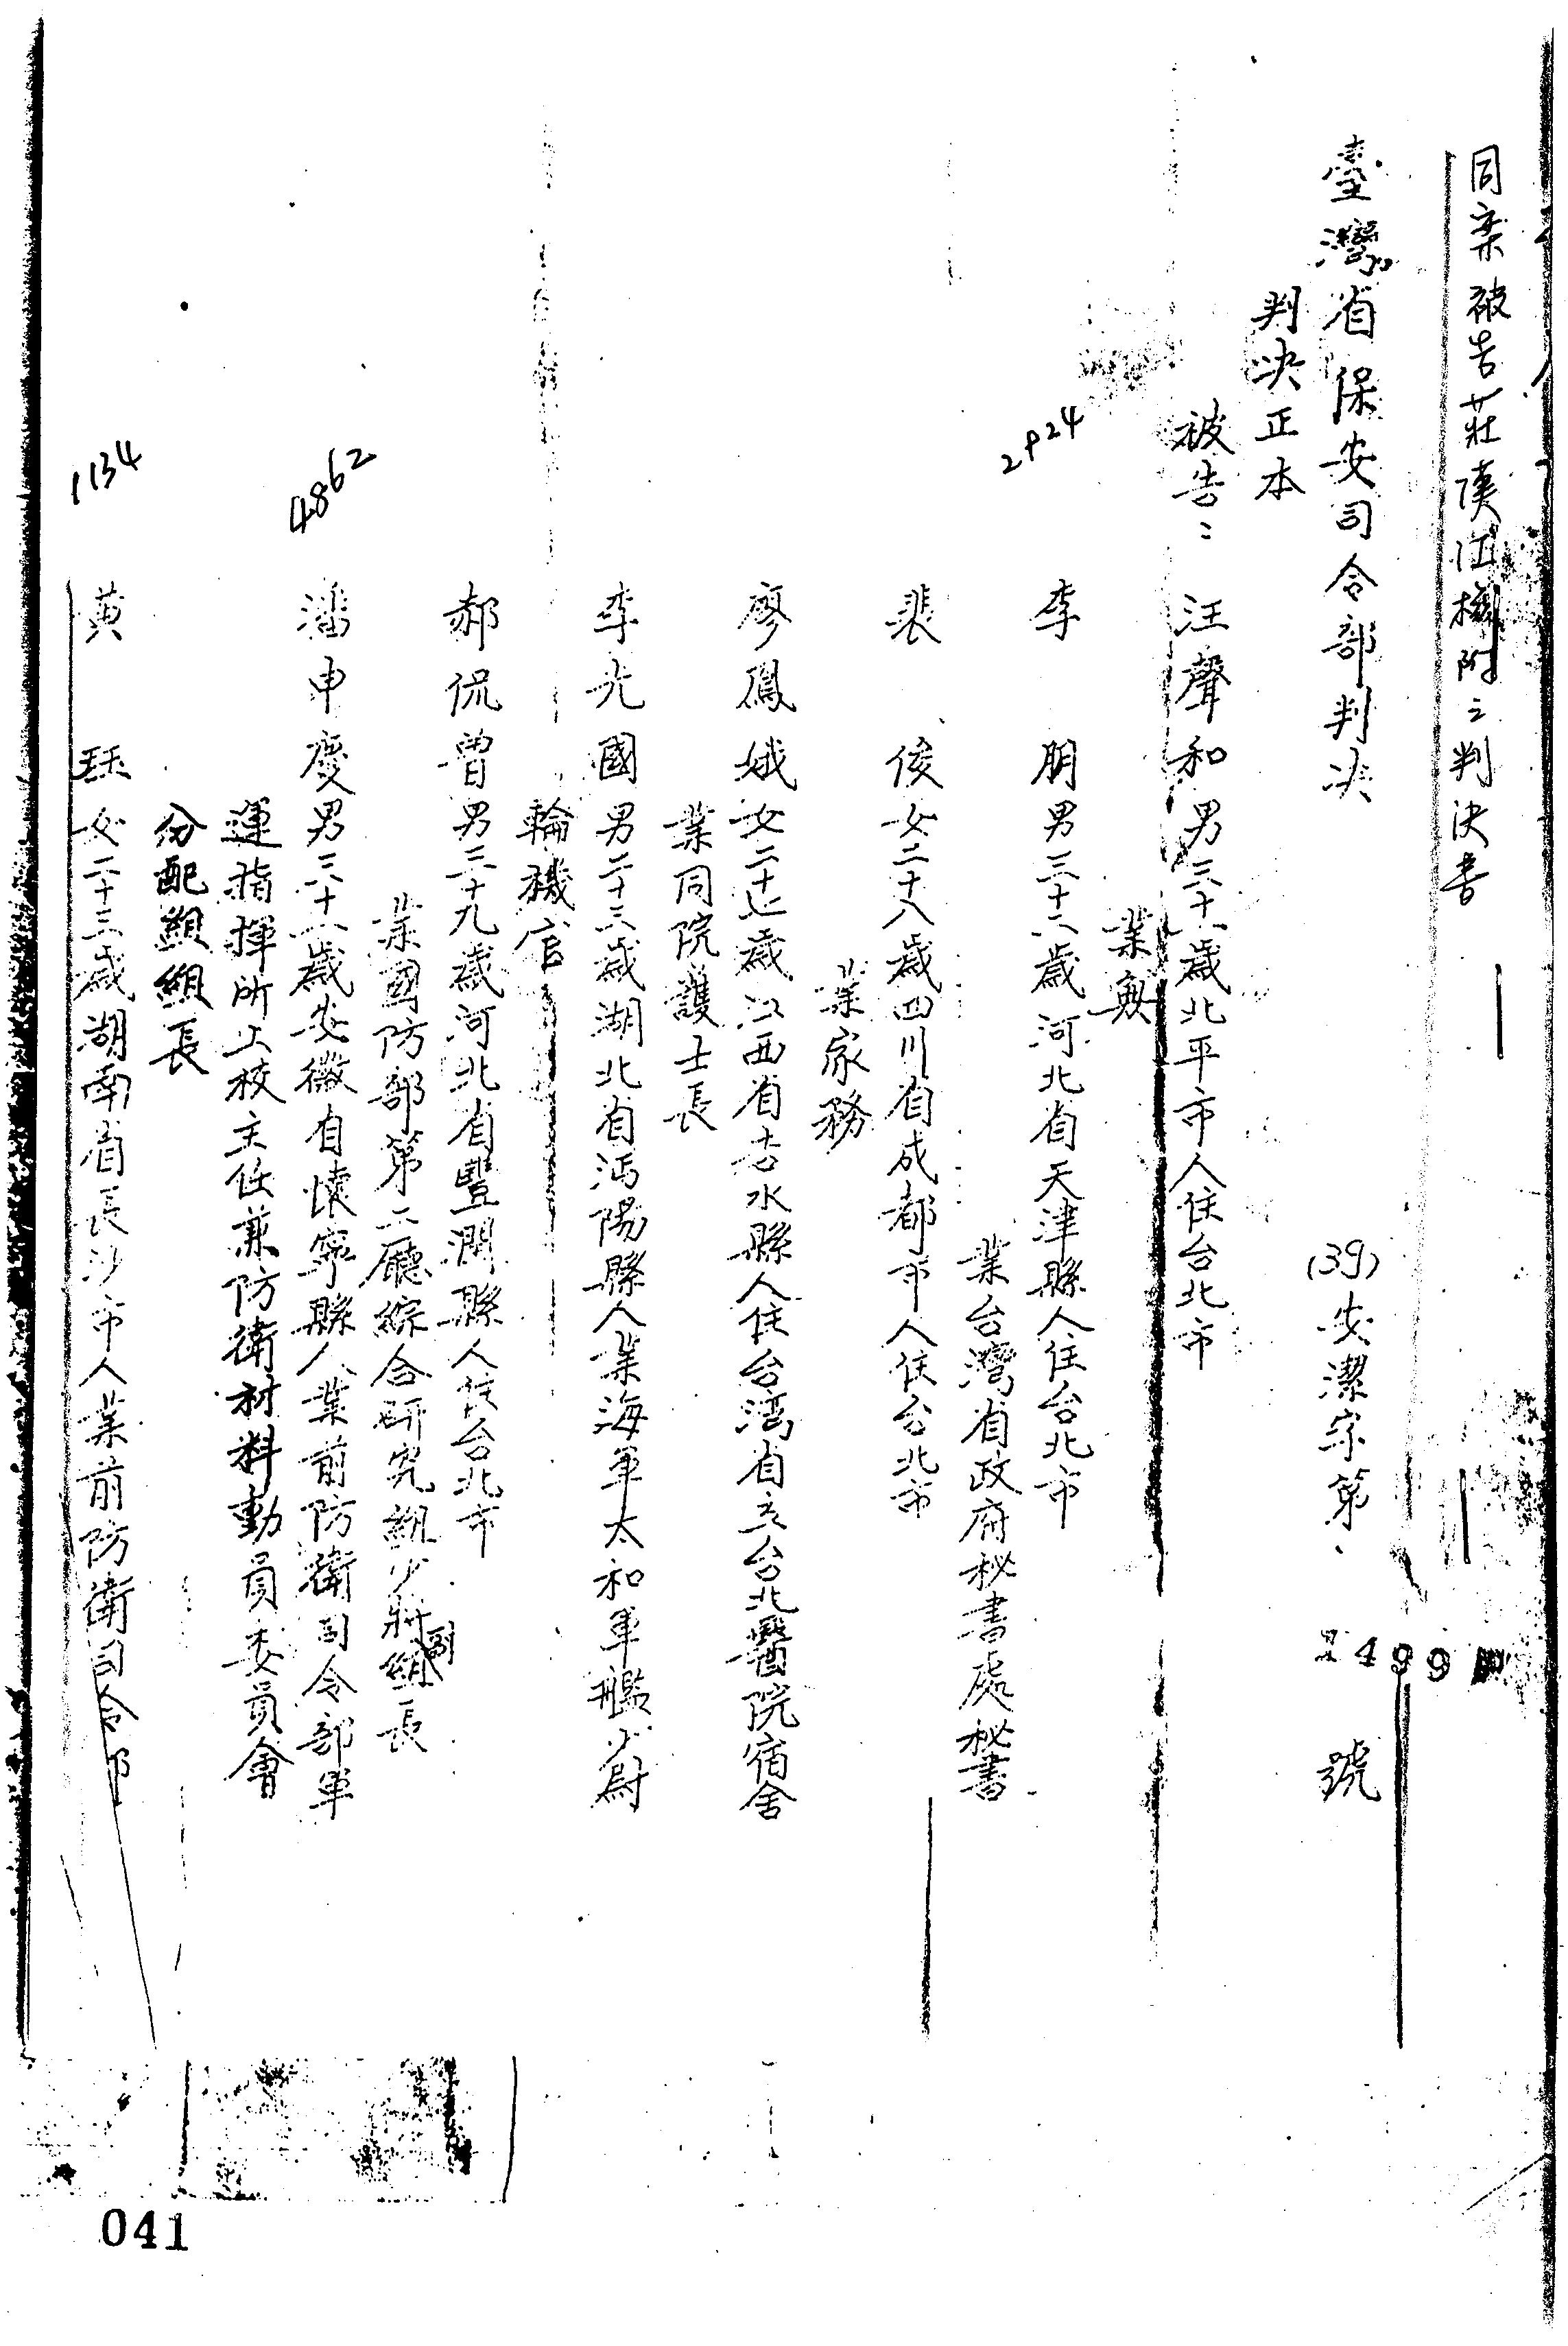 同案被告莊漢江檢附之判決書
臺灣省保安司令部判決
(39)安潔字第 2499 號
判決正本
被告：汪聲和 男 歲北平市人住台北市
業無
2924
李 朋 男三十 歲河北省天津縣人住台北市
業台灣省政府秘書處秘書
裴 俊 女二十八歲四川省成都市人住台北市
業家務
廖鳳娥 女二十七歲江西省吉水縣人住台灣省立台北醫院宿舍
業同院護士長
李光國 男二十三歲湖北省沔陽縣人業海軍太和軍艦少尉
輪機官
郝侃曾 男三十九歲河北省豐潤縣人住台北市
業國防部第二廳綜合研究組少將副組長
4862
潘申慶 男三十 歲安徽省懷寧縣人業前防衛司令部軍
運指揮所上校主任兼防衛材料動員委員會
分配組組長
1134
黃 珏 女二十三歲湖南省長沙市人業前防衛司令部
041